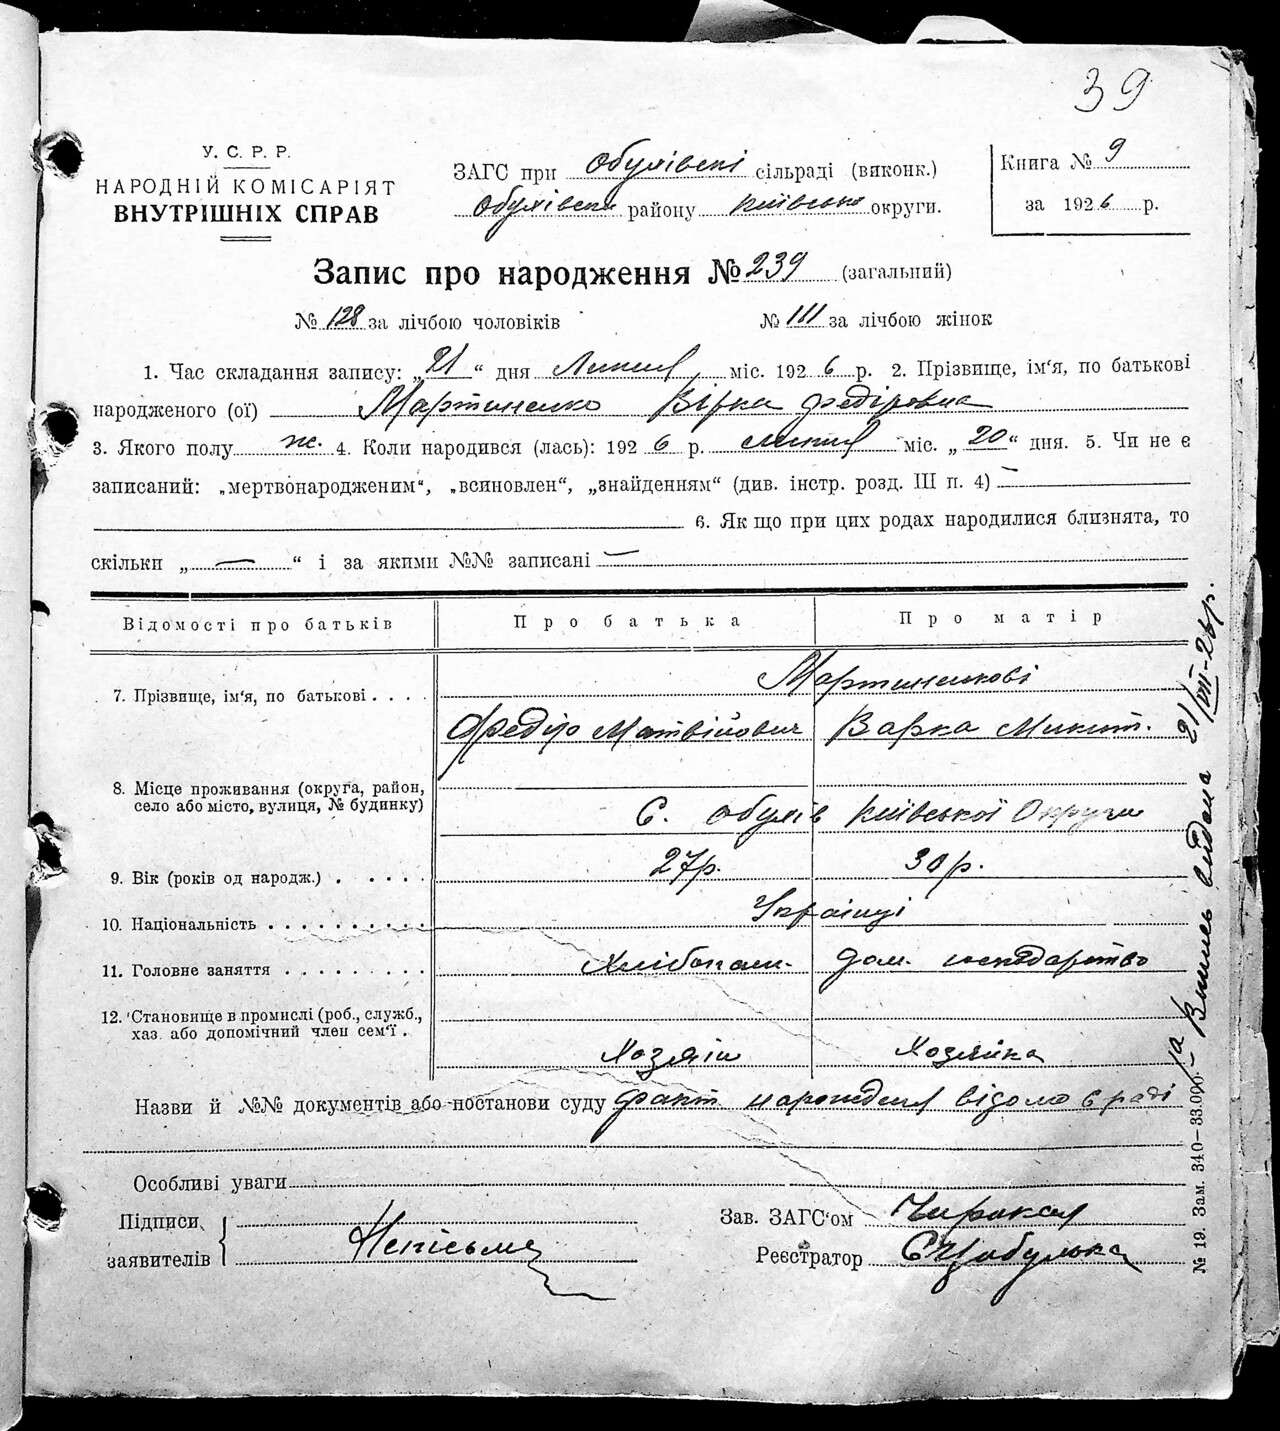 39
У. С. Р. Р.
НАРОДНІЙ КОМІСАРІЯТ
ВНУТРІШНІХ СПРАВ
ЗАГС при Обухівські сільраді (виконк.)
Обухівськ району Київсько округи.
Книга № 9
за 1926 р.
Запис про народження № 239 (загальний)
№ 128 за лічбою чоловіків № 111 за лічбою жінок
1. Час складання запису: „21“ дня Липня міс. 1926 р. 2. Прізвище, ім'я, по батькові
народженого (ої) Мартиненко Вірка Федіровна
3. Якого полу ж. 4. Коли народився (лась): 1926 р. липня міс. „20“ дня. 5. Чи не є
записаний: „мертвонародженим“, „всиновлен“, „знайденням“ (див. інстр. розд. III п. 4) —
6. Як що при цих родах народилися близнята, то
скільки „—“ і за якими №№ записані —
Відомості про батьків Про батька Про матір
7. Прізвище, ім'я, по батькові . . . . Мартиненкові
Федір Матвійович Варка Микит.
8. Місце проживання (округа, район,
село або місто, вулиця, № будинку) С. Обухів Київської Округи
9. Вік (років од народж.) . . . . . 27р. 30р.
10. Національність . . . . . . . . . . Українці
11. Головне заняття . . . . . . . . . Хлібопаш. Дом. господарство
12. Становище в промислі (роб., служб.,
хаз. або допомічний член сем'ї . Хозяїн Хозяйка
Назви й №№ документів або постанови суду факт народження відомо в раді
Особливі уваги
Підписи
заявителів Неписьмен
Зав. ЗАГС'ом
Реєстратор Є Цибулька
№ 19. Зам. 340—33.000.
Випись видана 21/VII-26р.